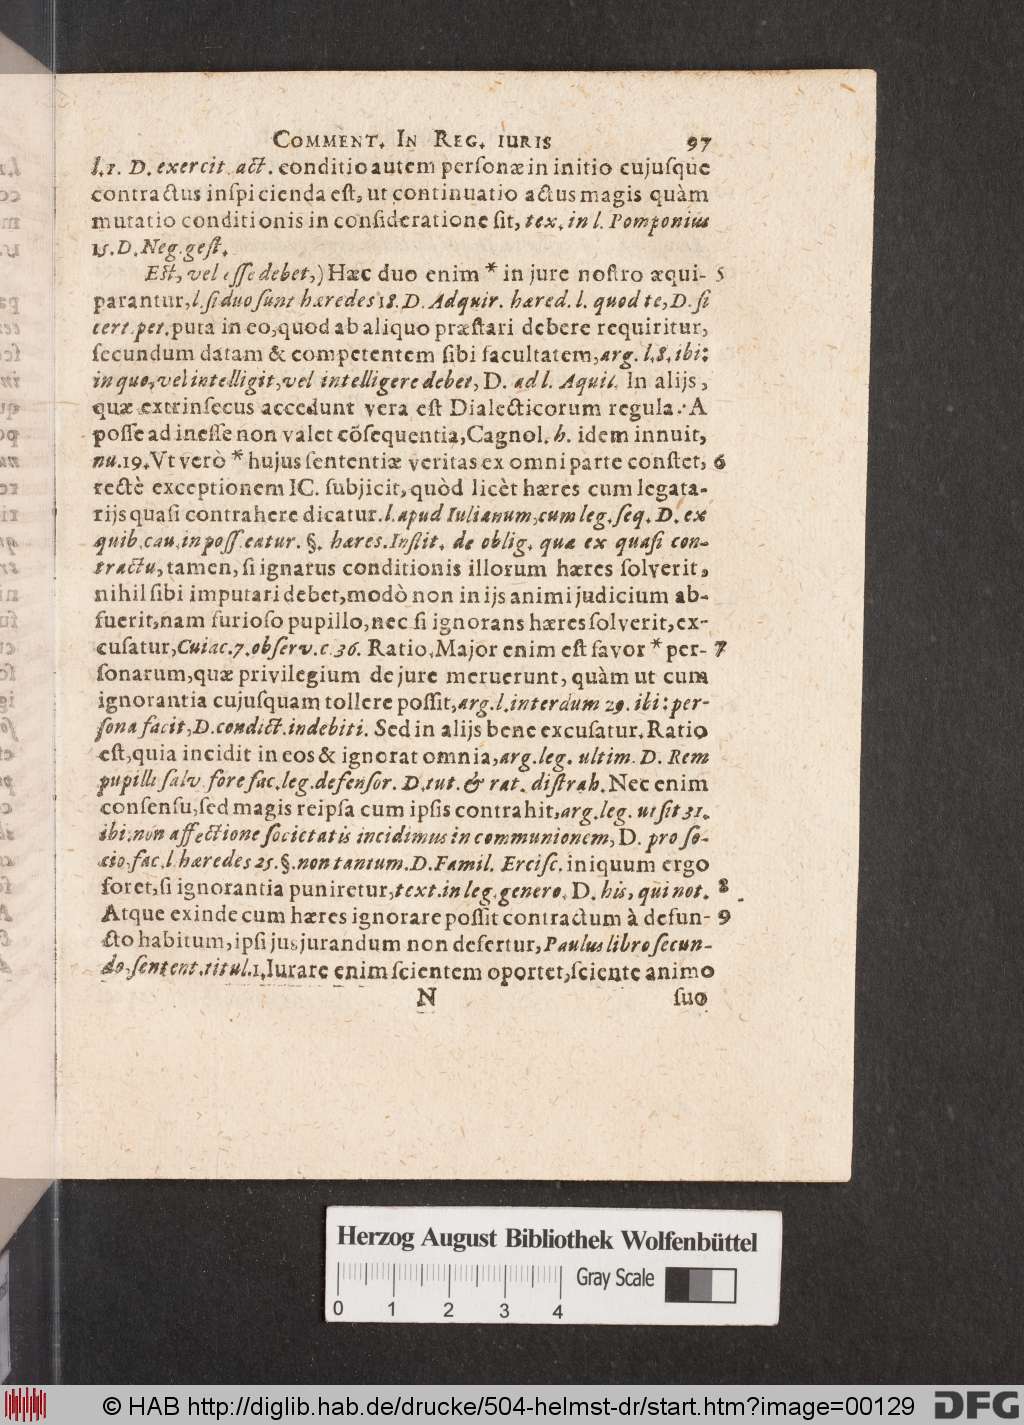 COMMENT. IN REG. IURIS 97
l.1. D. exercit. act. conditio autem personæ in initio cujusque
contractus inspicienda est, ut continuatio actus magis quàm
mutatio conditionis in consideratione sit, tex. in l. Pomponius
15. D. Neg. gest.
Est, vel esse debet,) Hæc duo enim * in jure nostro æqui- 5
parantur, l. si duo sunt hæredes 18. D. Adquir. hæred. l. quod te, D. si
cert. pet. puta in eo, quod ab aliquo præstari debere requiritur,
secundum datam & competentem sibi facultatem, arg. l. 8. ibi:
in quo, vel intelligit, vel intelligere debet, D. ad l. Aquil. In alijs,
quæ extrinsecus accedunt vera est Dialecticorum regula: A
posse ad inesse non valet cõsequentia, Cagnol. h. idem innuit,
nu. 19. Vt verò * hujus sententiæ veritas ex omni parte constet, 6
rectè exceptionem IC. subjicit, quòd licèt hæres cum legata-
rijs quasi contrahere dicatur. l. apud Iulianum, cum leg. seq. D. ex
quib. cau. in poss. eatur. §. hæres. Instit. de oblig. quæ ex quasi con-
tractu, tamen, si ignarus conditionis illorum hæres solverit,
nihil sibi imputari debet, modò non in ijs animi judicium ab-
fuerit, nam furioso pupillo, nec si ignorans hæres solverit, ex-
cusatur, Cuiac. 7. observ. c. 36. Ratio, Major enim est favor * per- 7
sonarum, quæ privilegium de jure meruerunt, quàm ut cum
ignorantia cujusquam tollere possit, arg. l. interdum 29. ibi: per-
sona facit, D. condict. indebiti. Sed in alijs bene excusatur. Ratio
est, quia incidit in eos & ignorat omnia, arg. leg. ultim. D. Rem
pupilli salv. fore fac. leg. defensor. D. tut. & rat. distrah. Nec enim
consensu, sed magis reipsa cum ipsis contrahit, arg. leg. ut sit 31.
ibi: non affectione societatis incidimus in communionem, D. pro so-
cio, fac. l. hæredes 25. §. non tantum. D. Famil. Ercisc. iniquum ergo
foret, si ignorantia puniretur, text. in leg. genero. D. his, qui not. 8
Atque exinde cum hæres ignorare possit contractum à defun- 9
cto habitum, ipsi jusjurandum non defertur, Paulus libro secun-
do, sentent. titul. 1, Iurare enim scientem oportet, sciente animo
N suo
Herzog August Bibliothek Wolfenbüttel
Gray Scale
0 1 2 3 4
© HAB http://diglib.hab.de/drucke/504-helmst-dr/start.htm?image=00129 DFG